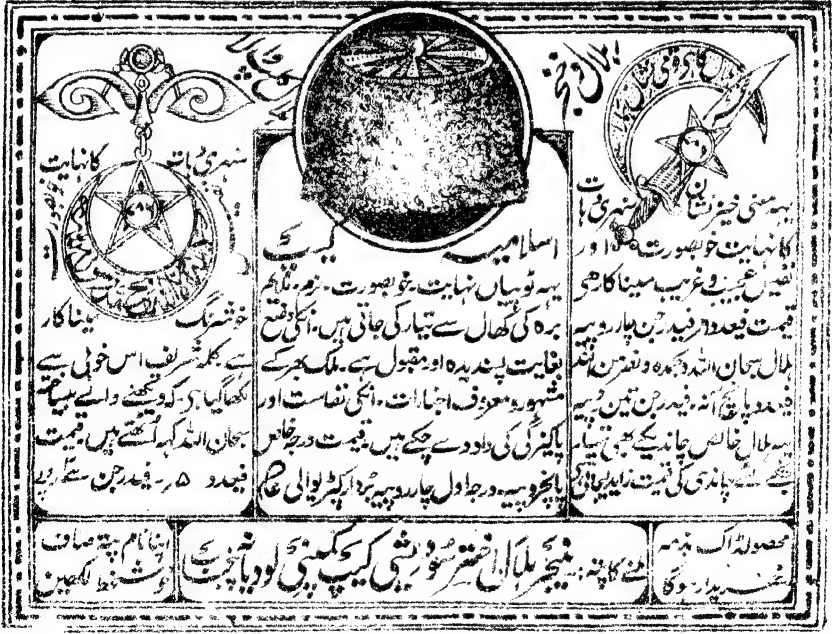 ہلال و خنجر
یہہ معنی خیز نشان سنہری دہات
کا نہایت خوبصورت اور
نفیس عجیب و غریب مینا کار ہی
قیمت فیعدد ۶؍ فیدرجن چار روپیہ
ہلال سبحان اللہ و بحمدہ و نصر من اللہ
فیعدد پانچ آنہ ۔ فیدرجن تین روپیہ
یہہ ہلال خالص چاندیکے بھی تیار
چاندی کی قیمت زاید لیجائیگی
اسلامیہ کیپ
یہہ ٹوپیاں نہایت ۔ خوبصورت ۔ نرم ۔ ملایم
برہ کی کھال سے تیار کی جاتی ہیں ۔ انکی وضع
بغایت پسندیدہ اور مقبول ہے ۔ ملک بھر کے
مشہور و معروف اخبارات ۔ انکی نفاست اور
پاکیزگی کی داد دے چکے ہیں ۔ قیمت درجہ خاص
پانچروپیہ ۔ درجہ اول چار روپیہ
سنہری دہات کا نہایت
خوبصورت
خوشرنگ مینا کار
ہے کلمہ شریف اس خوبی سے
لکھا گیا ہی ۔ کہ دیکھنے والے بیساختہ
سبحان اللہ کہہ اُٹھتے ہیں ۔ قیمت
فیعدد ۵؍ ۔ فیدرجن
محصولڈاک بذمہ
خریدار ہوگا
ملنے کا پتہ : منیجر ہلال اختر کیپ کمپنی لودیانہ پنجاب
اپنا نام پتہ صاف
خوشخط لکھیں